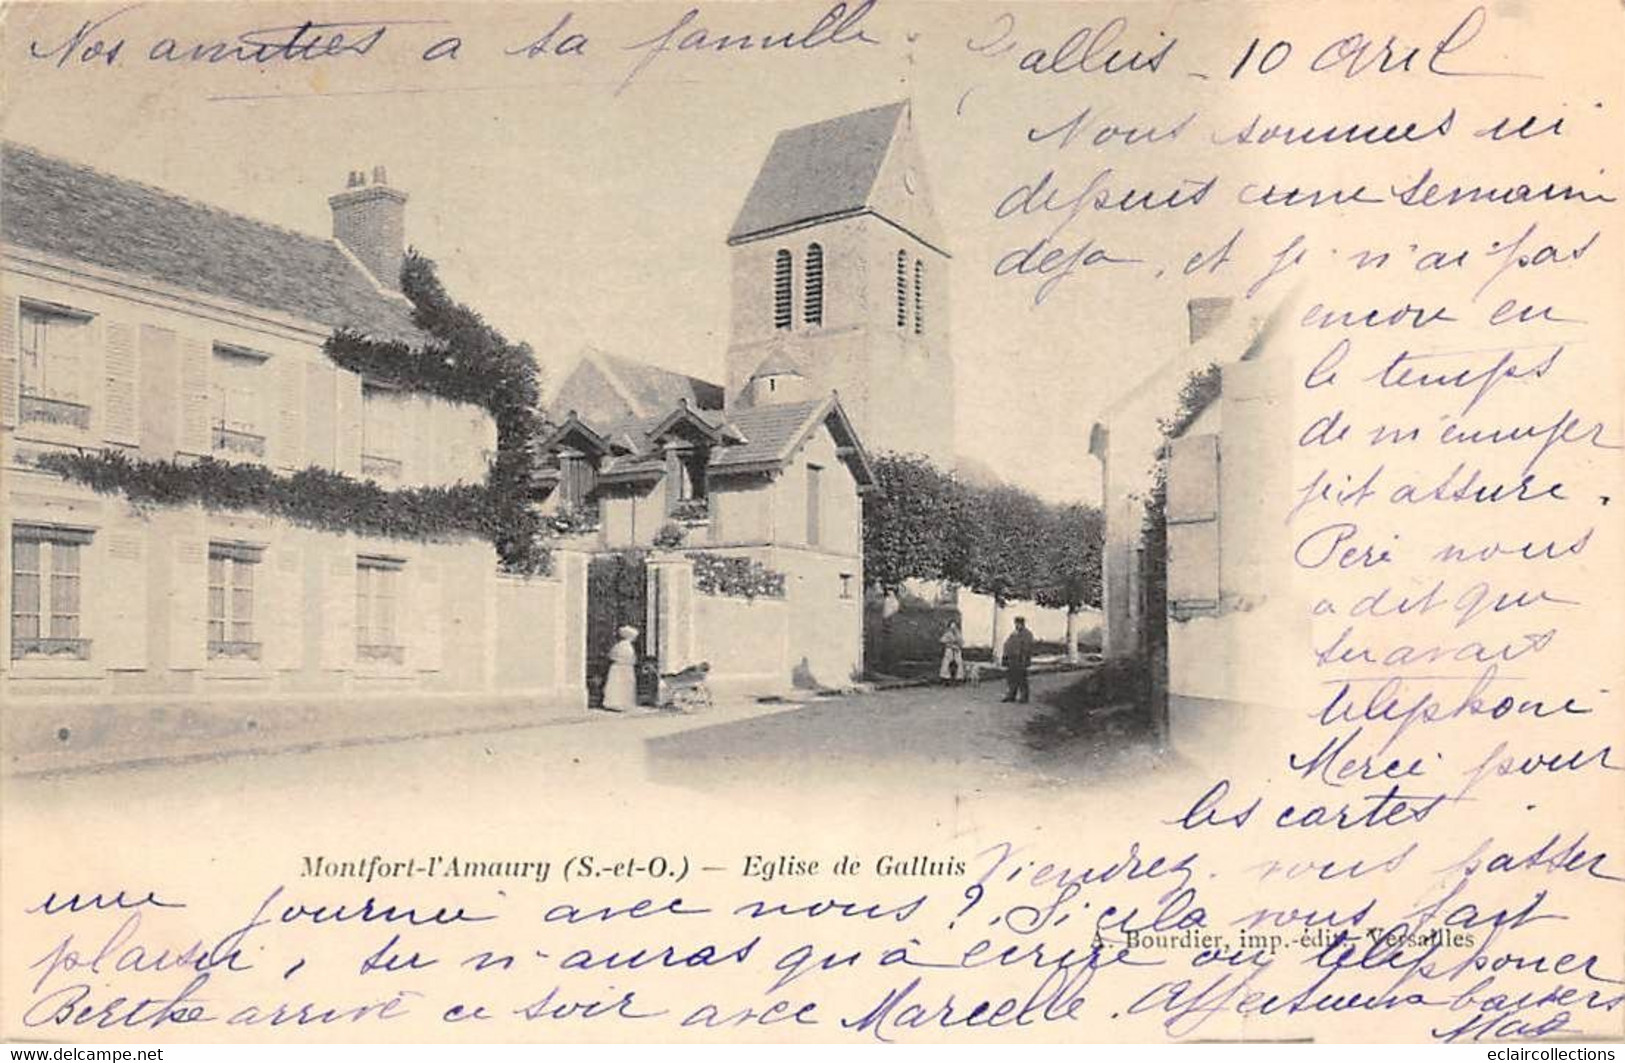 Nos amitiés a ta famille.
Galluis - 10 Avril
Nous sommes ici
depuis une semaine
deja, et je n'ai pas
encore eu
le temps
de m'ennuyer
je t'assure.
Père nous
a dit que
tu avais
téléphoné
Merci pour
les cartes
Viendrez vous passer
une journée avec nous ? Si cela vous fait
plaisir, tu n'auras qu'à écrire ou téléphoner
Berthe arrive ce soir avec Marcelle. Affectueux baisers
Montfort-l'Amaury (S.-et-O.) — Eglise de Galluis
A. Bourdier, imp.-édit. Versailles
eclaircollections